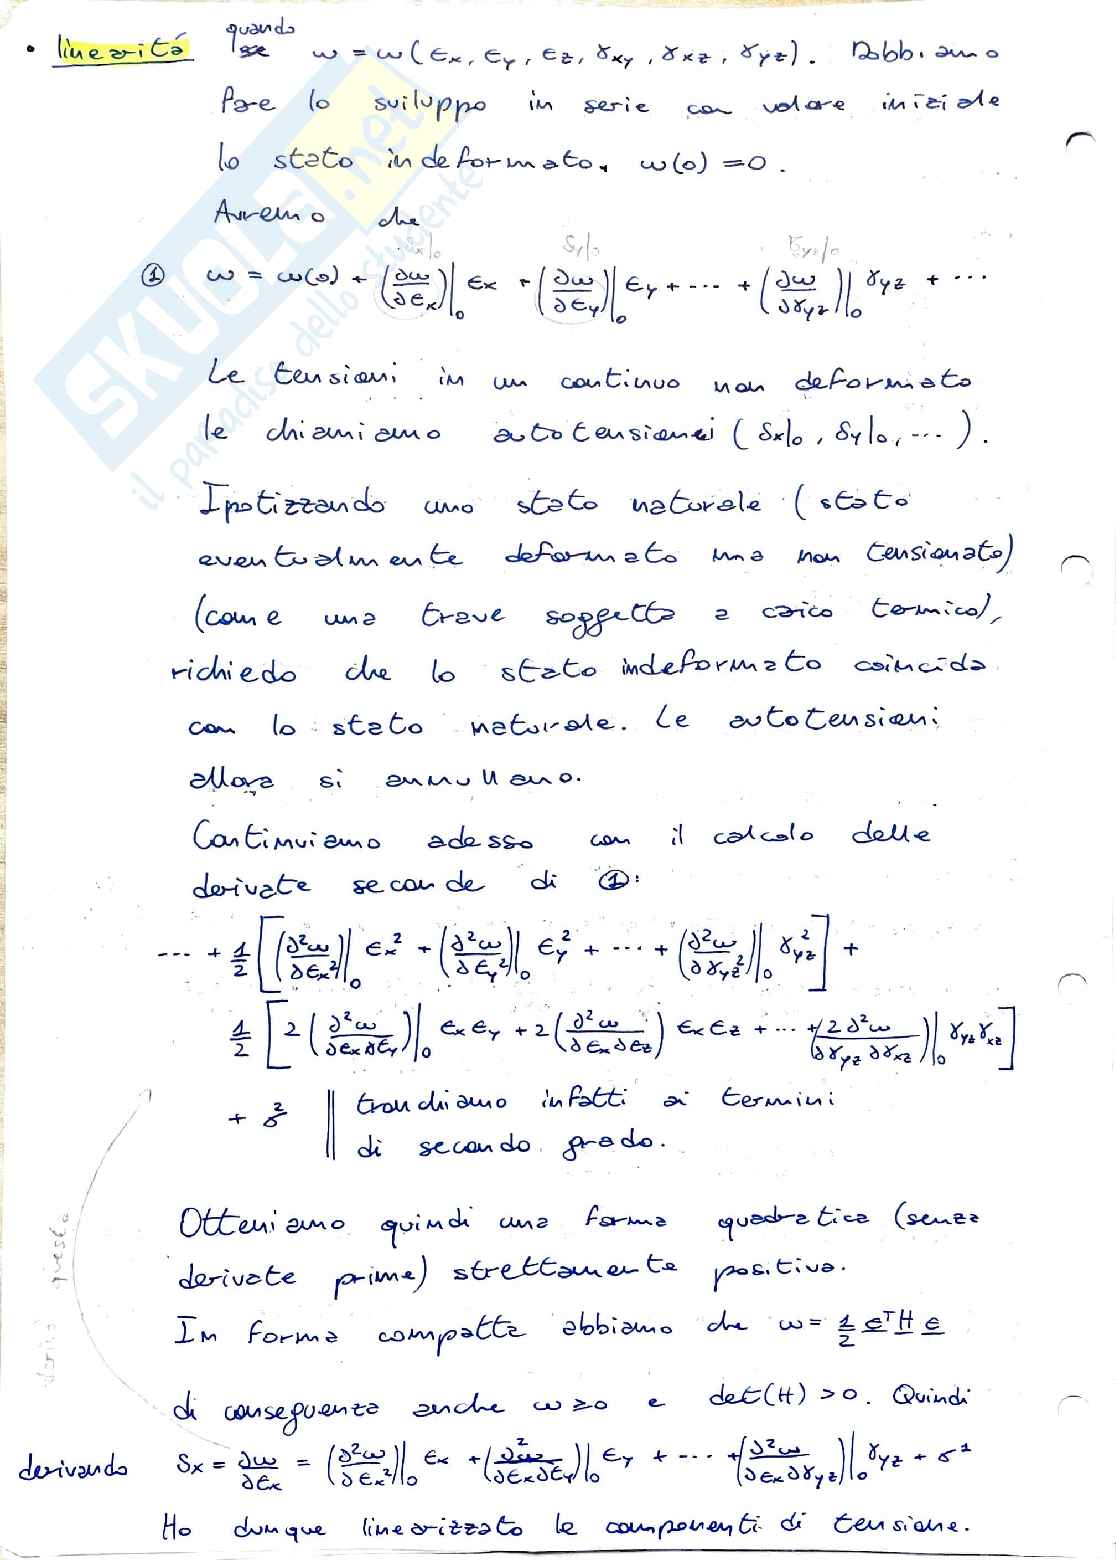 quando
• linearità se ω = ω(εx, εy, εz, γxy, γxz, γyz). Dobbiamo
fare lo sviluppo in serie con valore iniziale
lo stato indeformato. ω(0) = 0.
Avremo che
Sx|₀ Sy|₀ Syz|₀
① ω = ω(0) + (∂ω/∂εx)|₀ εx + (∂ω/∂εy)|₀ εy + ... + (∂ω/∂γyz)|₀ γyz + ...
Le tensioni in un continuo non deformato
le chiamiamo autotensioni (Sx|₀, Sy|₀, ...).
Ipotizzando uno stato naturale (stato
eventualmente deformato ma non tensionato)
(come una trave soggetta a carico termico),
richiedo che lo stato indeformato coincida
con lo stato naturale. Le autotensioni
allora si annullano.
Continuiamo adesso con il calcolo delle
derivate seconde di ①:
... + 1/2 [(∂²ω/∂εx²)|₀ εx² + (∂²ω/∂εy²)|₀ εy² + ... + (∂²ω/∂γyz²)|₀ γyz²] +
1/2 [2 (∂²ω/∂εx∂εy)|₀ εx εy + 2 (∂²ω/∂εx∂εz) εx εz + ... + (2∂²ω/∂γyz ∂γxz)|₀ γyz γxz]
+ σ² || tronchiamo infatti ai termini
di secondo grado.
Otteniamo quindi una forma quadratica (senza
derivate prime) strettamente positiva.
In forma compatta abbiamo che ω = 1/2 εᵀ H ε
di conseguenza anche ω ≥ 0 e det(H) > 0. Quindi
derivando Sx = ∂ω/∂εx = (∂²ω/∂εx²)|₀ εx + (∂²ω/∂εx∂εy)|₀ εy + ... + (∂²ω/∂εx∂γyz)|₀ γyz + σ¹
Ho dunque linearizzato le componenti di tensione.
questa
SKUOLA.net
il paradiso dello studente